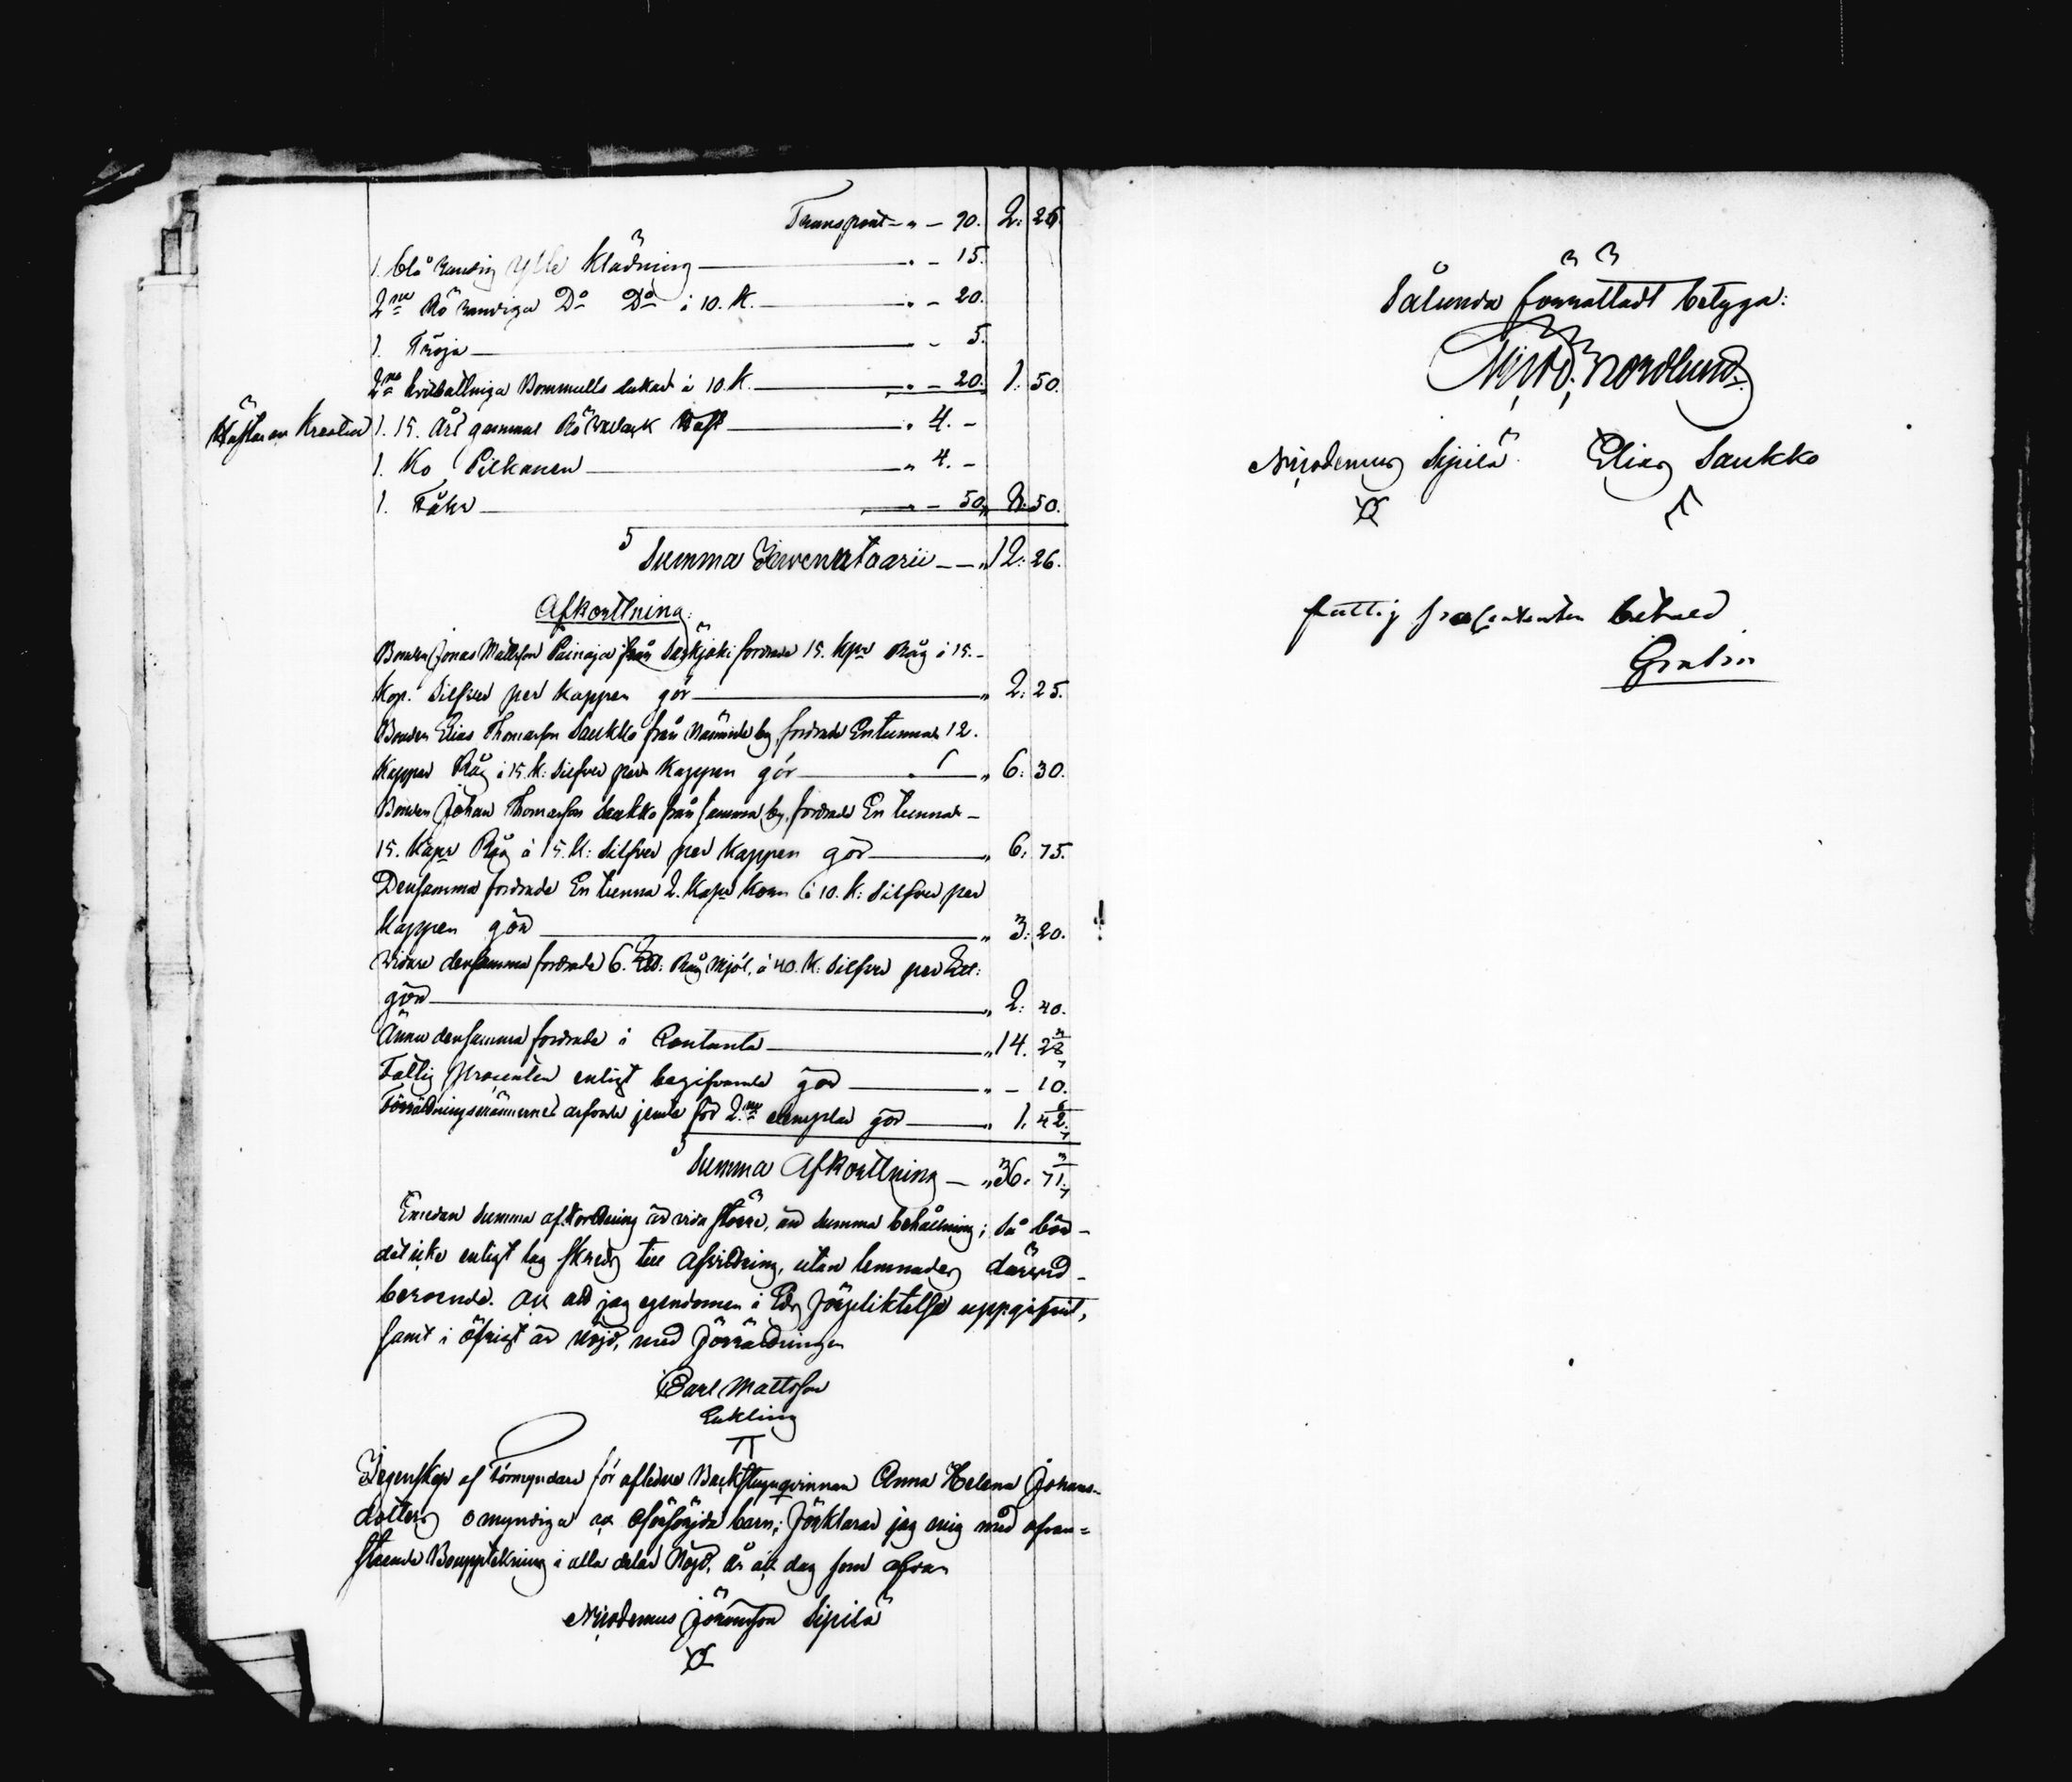 Transport — " — 90. 2: 26.
1. blå randig Ylle Klädning — " — 15.
2ne Rö randiga Do Do à 10. K. — " — 20.
1. Tröja — " — 5.
2ne Bommulls à 10. K. — " — 20. 1: 50.
Hästar an Kreatur
1. 15. Års gammal Rö Häst — " 4. —
1. Ko Pilkanen — " 4. —
1. Fåhr — " — 50. 8: 50.
Summa Inventaarii — " 12: 26.
Afkorttning:
Bonden Jonas Mattsson Painaja från Sääkjski fordrade 15. Kpr Råg à 15.
Kop. Silfver per kappen gör — " 2: 25.
Bonden Elias Thomasson Saukko från by, fordrade En tunna 12.
Kappar Råg à 15. k: Silfver per Kappen gör — " 6: 30.
Bonden Johan Thomasson Saukko från samma by, fordrade En tunna
15. Kapr Råg à 15. K: Silfver per Kappen gör — " 6. 75.
Densamma fordrade En tunna 2. Kapr Korn à 10. K: Silfver per
Kappen gör — " 3: 20.
Vidare densamma fordrade 6. Råg Mjöl, à 40. K: Silfver per
gör — " 2: 40.
Ännu densamma fordrade i Contanta — " 14. 28 3/7
Fattig Procenten enligt begifvande gör — " — 10.
Förrättningsmännernes arfvode jemte för 2ne exemplar gör — " 1. 42. 6/7
Summa Afkorttning — " 36. 71. 3/7
Emedan Summa afkorttning är vida större, än Summa behållning; Så bör
det icke enligt lag skreds till afvittring, utan lemnades därvid
beroende. Ock att jag egendomen i Eds förpliktelse uppgifvit,
samt i öfrigt är nöjd, med förrättningen
Carl Mattsson
Enkling
I egenskap af Förmyndare för aflidne Backstuguqvinnan Anna Helena Johans-
dotters omyndiga ock oförsörjda barn; förklarar jag mig med ofvan=
stående Bouppteckning i alla delar Nöjd, År ock dag som ofvan
Nicodemus Johansson Sipilä
Sålunda förrättadt betyga:
Nordlund.
Nicodemus Sipilä Elias Saukko
fattig procenten betald